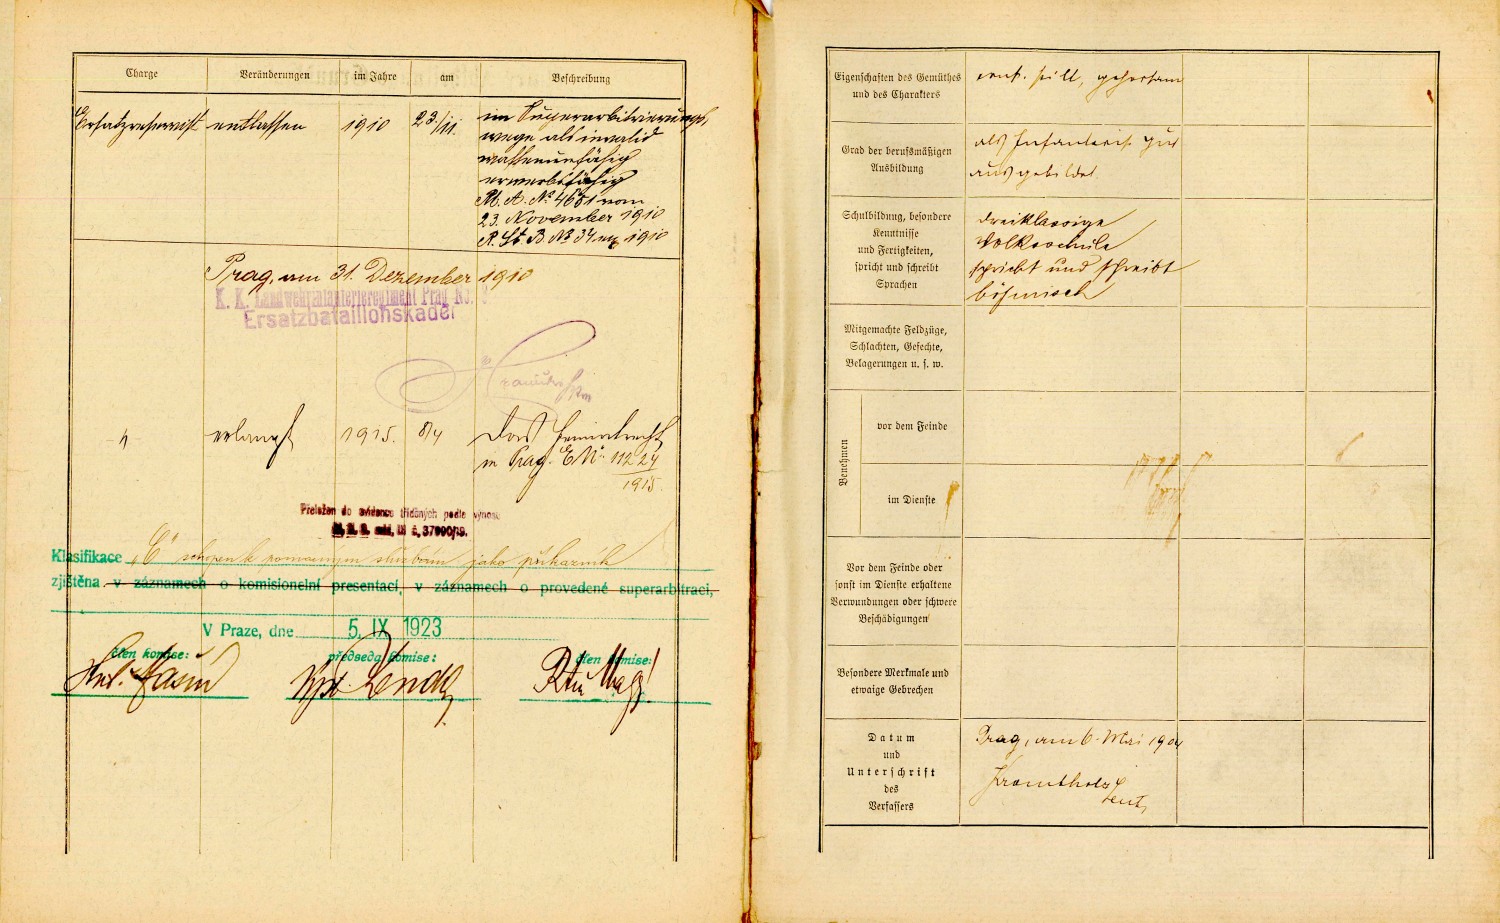 Charge Veränderungen im Jahre am Beschreibung
Ersatzreservist entlassen 1910 23./11. im Superarbitrierungs,
wege als invalid
waffenunfähig
erwerbsfähig
M. A. No 4681 vom
23. November 1910
R. St. B. No 34 1910
Prag, am 31. Dezember 1910
K. K. Landwehrinfanterieregiment Prag Nr. 8
Ersatzbataillonskader
erlangt 1915. 8/4 das Heimatrecht
in Prag. E No 11224
1915.
Přeložen do evidence tříděných podle výnosu
M. N. O. č. 37000/19.
Klasifikace „C“ schopen k pomocným službám jako příkazník
zjištěna v záznamech o komisionelní presentaci, v záznamech o provedené superarbitraci,
V Praze, dne 5. IX 1923
člen komise: předseda komise: člen komise:
Eigenschaften des Gemüthes
und des Charakters
ernst, still, gehorsam
Grad der berufsmäßigen
Ausbildung
als Infanterist gut
ausgebildet
Schulbildung, besondere
Kenntnisse
und Fertigkeiten,
spricht und schreibt
Sprachen
dreiklassige
Volksschule
spricht und schreibt
böhmisch
Mitgemachte Feldzüge,
Schlachten, Gefechte,
Belagerungen u. s. w.
Benehmen
vor dem Feinde
im Dienste
Vor dem Feinde oder
sonst im Dienste erhaltene
Verwundungen oder schwere
Beschädigungen
Besondere Merkmale und
etwaige Gebrechen
Datum
und
Unterschrift
des
Verfassers
Prag, am 6. Mai 1904
Kromholz